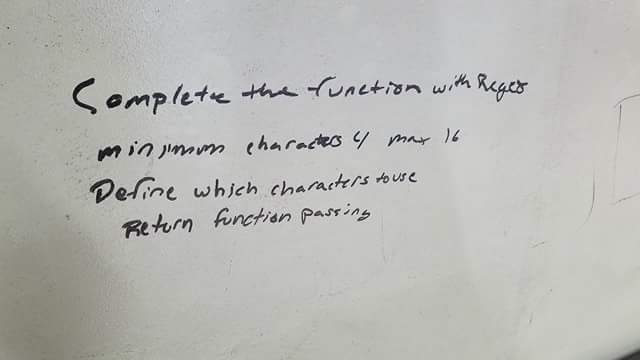 Complete the function with Regex
minimum characters 4 max 16
Define which characters to use
Return function passing